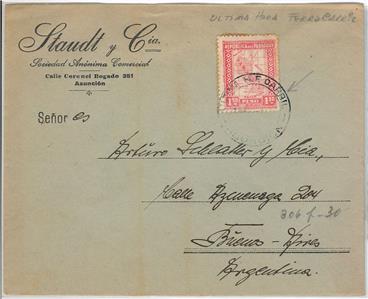 ULTIMA HORA FERROCARRIL
Staudt y Cia.
Sociedad Anónima Comercial
Calle Coronel Bogado 251
Asunción
REPUBLICA DEL PARAGUAY
1.50 PESO 1.50
Señor es
Arturo Schlatter y Cia,
Calle Azcuenaga 204
306 f-30
Buenos-Aires
Argentina.